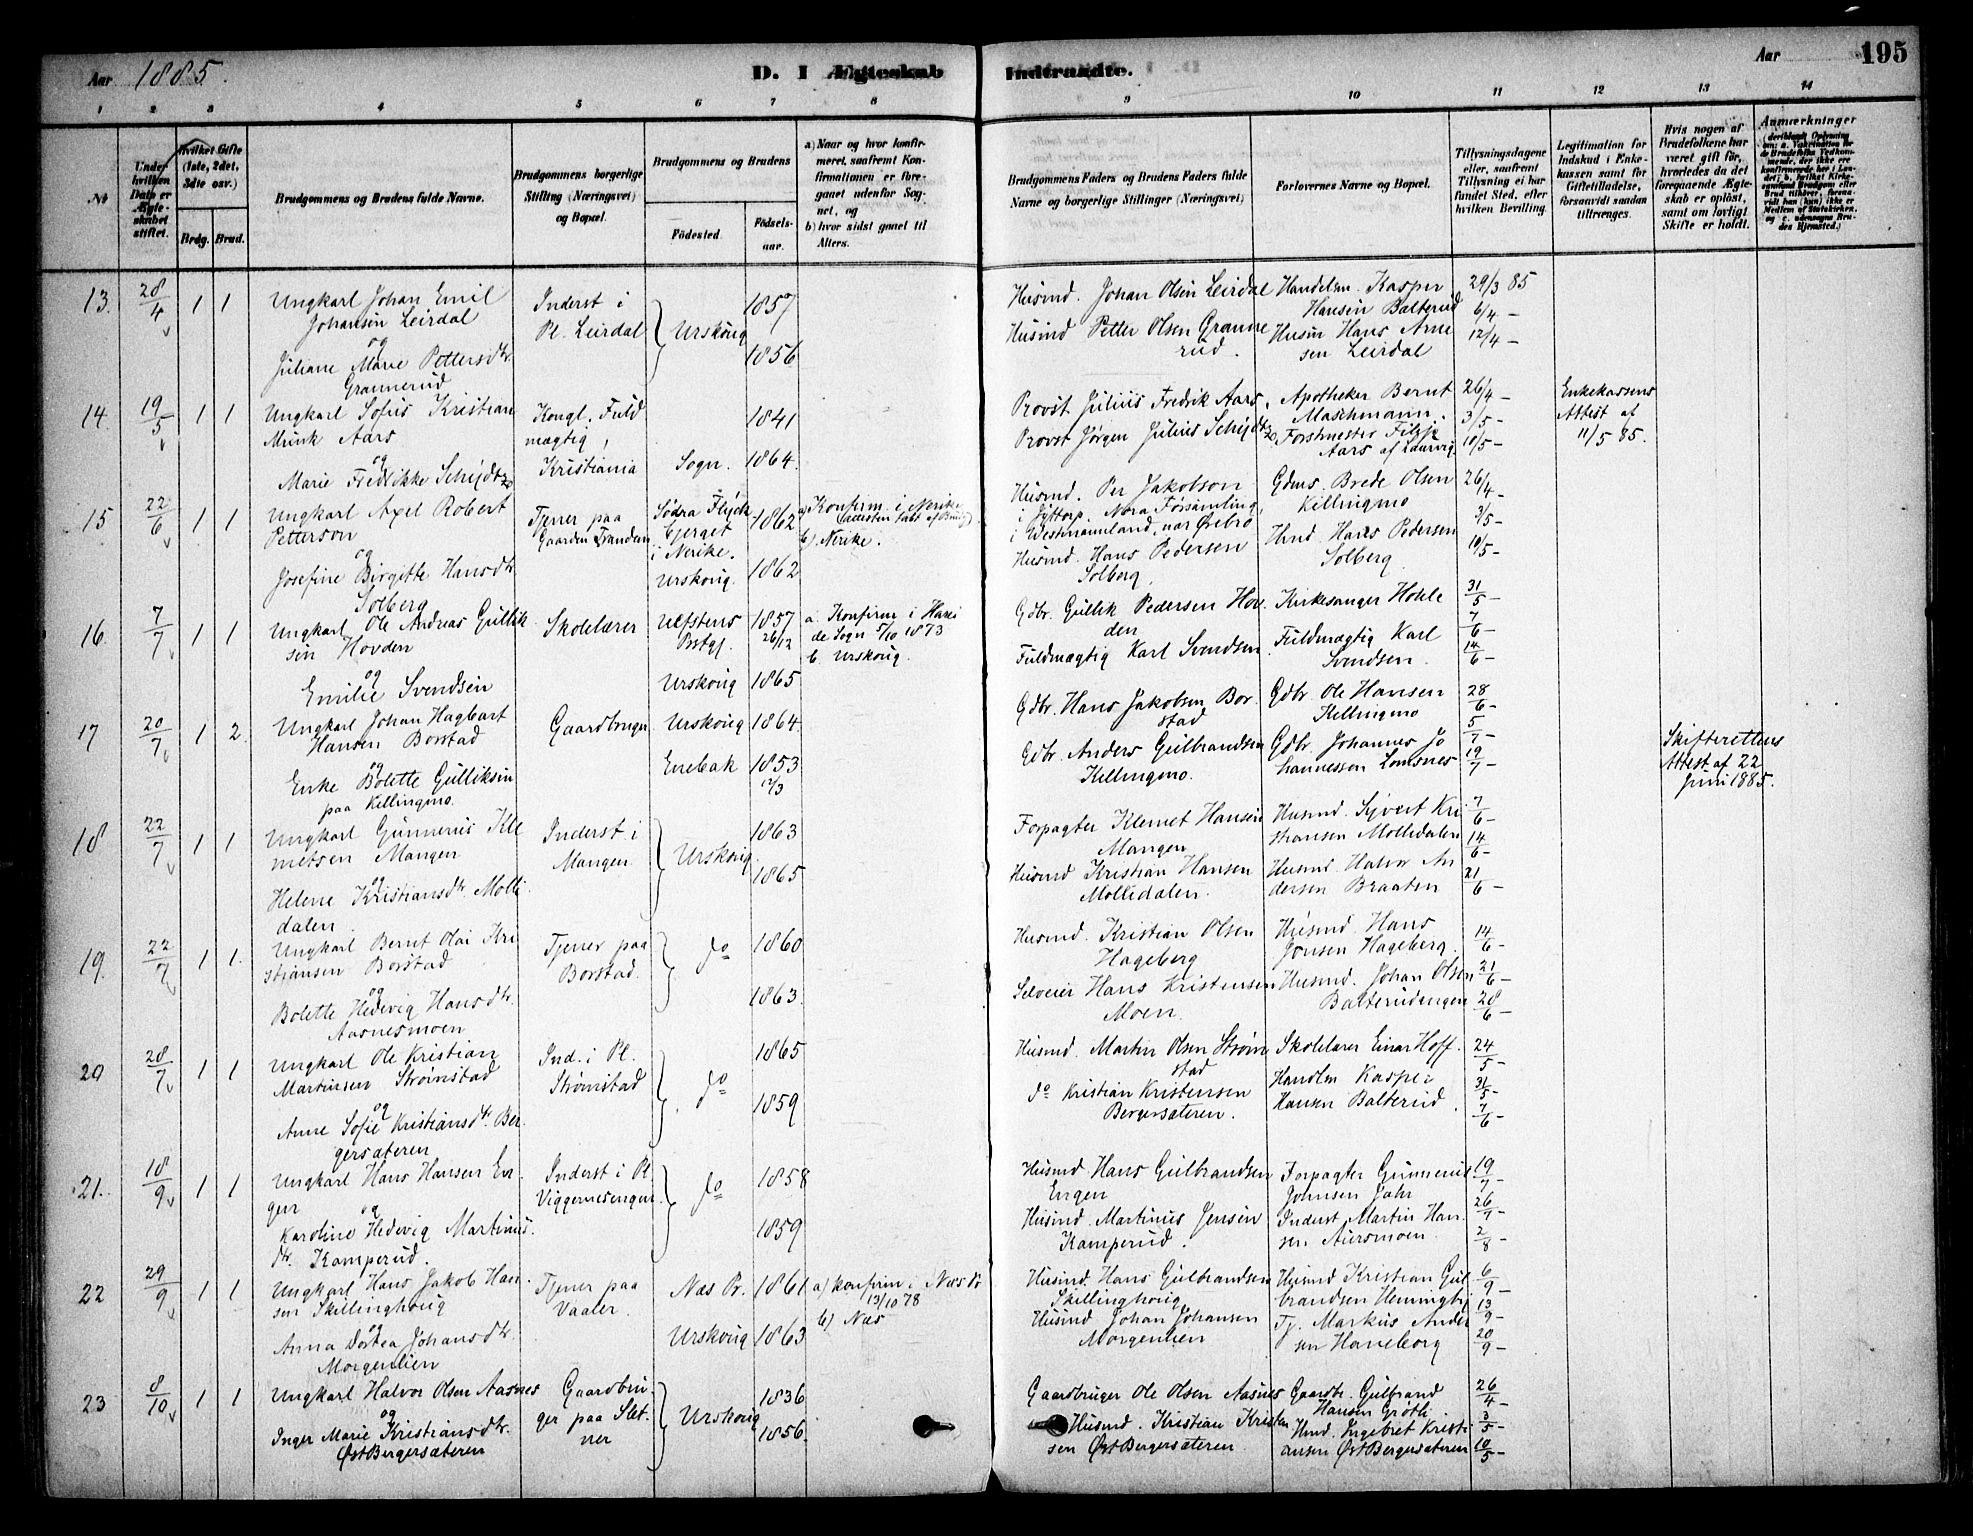 Aar 1885.
D. I Ægteskab
Indtraadte.
Aar
195
1 2 3 4 5 6 7 8 9 10 11 12 13 14
№
Under hvilken Dato er Ægteskabet stiftet.
Hvilket Gifte (1ste, 2det, 3die osv.)
Brdg. Brud.
Brudgommens og Brudens fulde Navne.
Brudgommens borgerlige Stilling (Næringsvei) og Bopæl.
Brudgommens og Brudens
Födested.
Födselsaar.
a) Naar og hvor konfirmeret, saafremt Konfirmationen er foregaaet udenfor Sognet, og
b) hvor sidst gaaet til Alters.
Brudgommens Faders og Brudens Faders fulde Navne og borgerlige Stillinger (Næringsvei)
Forlovernes Navne og Bopæl.
Tillysningsdagene eller, saafremt Tillysning ei har fundet Sted, efter hvilken Bevilling.
Legitimation for Indskud i Enkekassen samt for Giftetilladelse, forsaavidt saadan tiltrænges.
Hvis nogen af Brudefolkene har været gift för, hvorledes da det foregaaende Ægteskab er oplöst, samt om lovligt Skifte er holdt.
Anmærkninger
13. 28/4 1 1
Ungkarl Johan Emil
Johansen Leirdal
og
Juliane Marie Pettersdtr.
Grannerud
Inderst i
Pl. Leirdal
Urskoug
1857
1856
Husmd. Johan Olsen Leirdal
Husmd Petter Olsen Granne
rud.
Handelsm. Kasper
Hansen Balterud
Husm Hans Arne
sen Leirdal
29/3 85
6/4 –
12/4 –
14. 19/5 1 1
Ungkarl Sofus Kristian
Munk Aars
og
Marie Fredrikke Schydtz
Kongl. Fuld
mægtig,
Kristiania
Sogn.
1841
1864.
Provst Julius Fredrik Aars.
Provst Jørgen Julius Schydtz
Apotheker Bernt
Maschmann.
Forstmester Filip
Aars af Laurvig
26/4 –
3/5 –
10/5 –
Enkekassens
Attest af
11/5 85.
15 22/6 1 1
Ungkarl Axel Robert
Petterson
og
Josefine Birgitte Hansdtr.
Solberg
Tjener paa
Gaarden Tranden
Södra
bjerget
i Nerike.
Urskoug.
1862
1862
a) Konfirm. i Nerike
b) Nerike.
Husmd. Per Jakobson
i Jyttorp, Nora Församling,
i Westmannland, nær Örebro
Husmd. Hans Pedersen
Solberg.
Gdms. Brede Olsen
Killingmo
Hmd. Hans Pedersen
Solberg
26/4 –
3/5 –
10/5 –
16. 7/7 1 1
Ungkarl Ole Andreas Gullik
sen Hovden
og
Emilie Svendsen
Skolelærer
Ulfstens
Prstgj.
Urskoug
1857
26/12
1865
a. Konfirm i Harei
de Sogn 5/10 1873
b. Urskoug.
Gdbr. Gullik Pedersen Hov
den
Fuldmægtig Karl Svendsen
Kirkesanger Hohle
Fuldmægtig Karl
Svendsen.
31/5 –
7/6 –
14/6 –
17 20/7 1 2.
Ungkarl Johan Hagbart
Hansen Borstad
og
Enke Bolette Gulliksen
paa Killingmo.
Gaardbruger
Urskoug
Enebak
1864.
1853
Gdbr. Hans Jakobsen Bor
stad
Gdbr. Anders Gulbrandsen
Killingmo.
Gdbr. Ole Hansen
Killingmo
Gdbr. Johannes Jo
hannessen Lomsnes
28/6 –
5/7 –
19/7 –
Skifterettens
Attest af 22
Juni 1885.
18 22/7 1 1
Ungkarl Gunnerius Kle
metsen Mangen
og
Helene Kristiansdtr. Molli
dalen.
Inderst i
Mangen
Urskoug
1863
1865
Forpagter Klemet Hansen
Mangen
Husmd Kristian Hansen
Mollidalen.
Husmd. Syvert Kri
stiansen Mollidalen
Husmd. Halvor An
dersen Braaten
7/6 –
14/6 –
21/6 –
19. 22/7 1 1.
Ungkarl Bernt Olai Kri
stiansen Borstad
og
Bolette Hedevig Hansdtr.
Aasnesmoen
Tjener paa
Borstad.
do
1860
1863.
Husmd. Kristian Olsen
Hageberg
Selveier Hans Kristensen
Moen.
Husmd. Hans
Jonsen Hageberg.
Husmd. Johan Olsen
Balterudengen
14/6 –
21/6 –
28/6 –
20 28/7 1 1
Ungkarl Ole Kristian
Martinsen Strömstad
og
Anne Sofie Kristiansdtr. Ber
gersæteren
Ind. i Pl.
Strömstad
do
1865
1859
Husmd. Martin Olsen Ström
stad
do Kristian Kristensen
Bergersæteren.
Skolelærer Einar Hoff.
Handlsm Kasper
Hansen Balterud.
24/5 –
31/5 –
7/6 –
21. 18/9 1 1
Ungkarl Hans Hansen En
gen
og
Karoline Hedevig Martinus
dtr. Kamperud.
Inderst i Pl
Viggernesengen.
do
1858
1859
Husmd Hans Gulbrandsen
Engen
Husmd. Martinus Jensen
Kamperud.
Forpagter Gunnerius
Johnsen Jahr
Inderst Martin Han
sen Auersmoen.
19/7 –
26/7 –
2/8 –
22 29/9 1 1
Ungkarl Hans Jakob Han
sen Skillinghoug
og
Anna Dortea Johansdtr.
Morgenlien
Tjener paa
Vaaler.
Næs Pr.
Urskoug
1861
1863
a) Konfirm. i Næs do
13/10 78
b) Næs
Husmd. Hans Gulbrandsen
Skillinghoug
Husmd Johan Johansen
Morgenlien
Husmd Kristian Gul
brandsen Henningby
Tj. Markus Ander
sen Haneborg
6/9 –
13/9 –
20/9 –
23 8/10 1 1
Ungkarl Halvor Olsen Aasnes
og
Inger Marie Kristiansdtr.
ØstBergersæteren
Gaardbru
ger paa Slet
ner
Urskoug
1836
1856.
Gaardbruger Ole Olsen Aasnes
Husmd. Kristian Kristen
sen ØstBergersæteren
Gaardbr. Gulbrand
Hansen Grötli
Hmd. Ingebret Kristi
ansen ØstBergersæteren
26/4 –
3/5 –
10/5 –